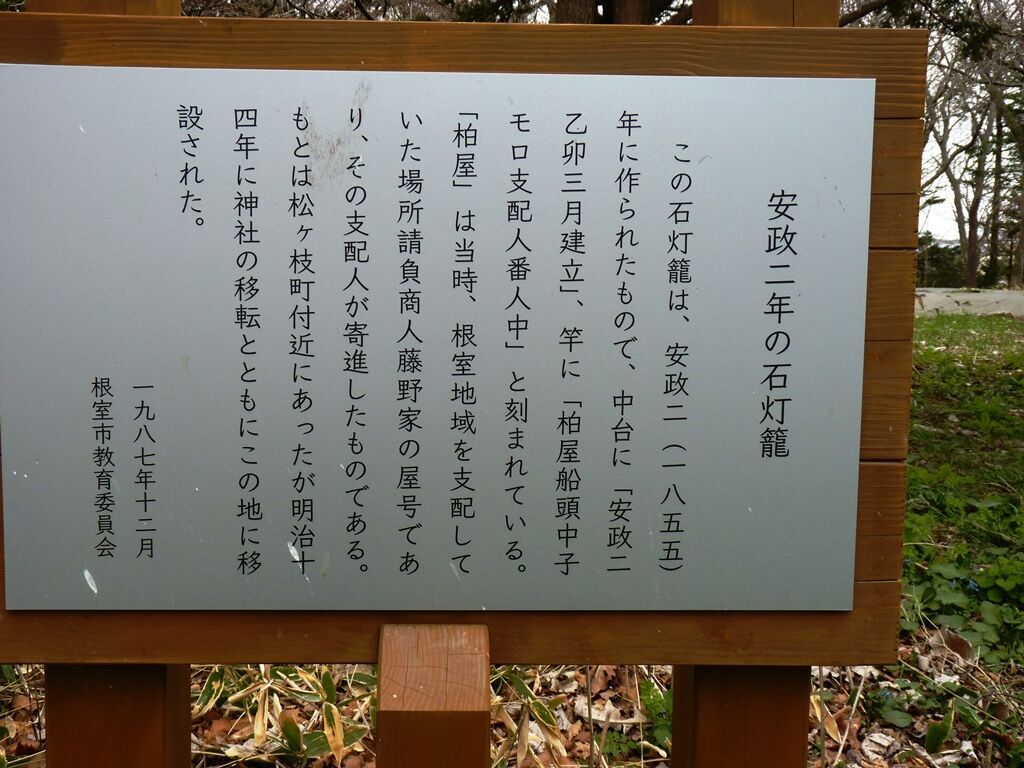 安政二年の石灯籠
この石灯籠は、安政二(一八五五)
年に作られたもので、中台に「安政二
乙卯三月建立」、竿に「柏屋船頭中子
モロ支配人番人中」と刻まれている。
「柏屋」は当時、根室地域を支配して
いた場所請負商人藤野家の屋号であ
り、その支配人が寄進したものである。
もとは松ヶ枝町付近にあったが明治十
四年に神社の移転とともにこの地に移
設された。
一九八七年十二月
根室市教育委員会